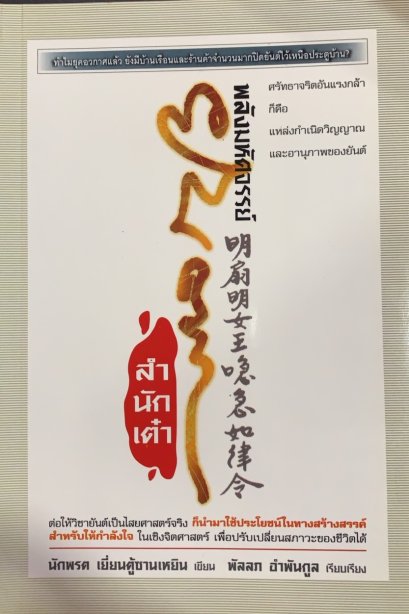 ทำไมยุคอวกาศแล้ว ยังมีบ้านเรือนและร้านค้าจำนวนมากปิดยันต์ไว้เหนือประตูบ้าน?
ศรัทธาจริตอันแรงกล้า
ก็คือ
แหล่งกำเนิดวิญญาณ
และอานุภาพของยันต์
พลังมหัศจรรย์
明扇明女王喼急如律令
สำ
นัก
เต๋า
ต่อให้วิชายันต์เป็นไสยศาสตร์จริง ก็นำมาใช้ประโยชน์ในทางสร้างสรรค์
สำหรับให้กำลังใจ ในเชิงจิตศาสตร์ เพื่อปรับเปลี่ยนสภาวะของชีวิตได้
นักพรต เยี่ยนคู้ซานเหยิน เขียน พัลลภ อำพันกูล เรียบเรียง